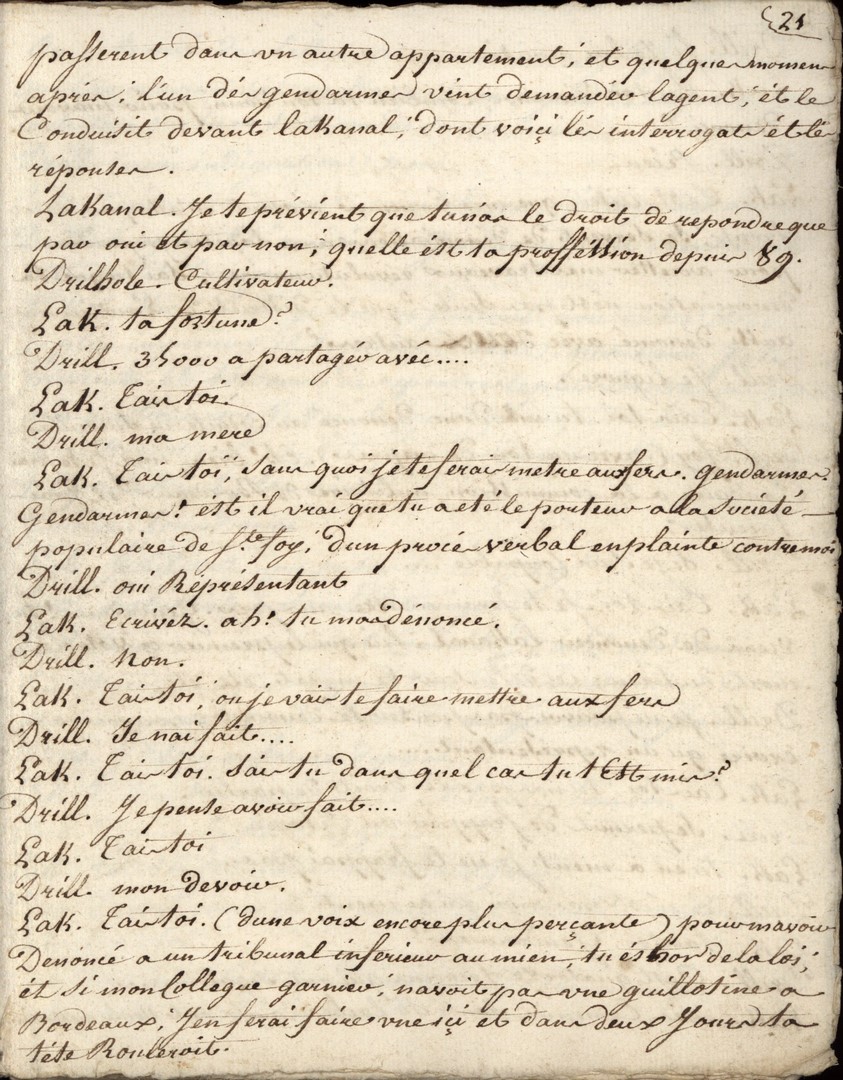 21
passerent dans vn autre appartement; et quelques momens
après; l'un dés gendarmes vint demandér lagent; ét le
Conduisit devant laKanal; dont voiçi lés interrogats ét lés
réponses.
LaKanal. Je te prévient que tu nas le droit dé repondre que
par oui et par non; quelle ést ta proffėssion depuis 89.
Drilhole. Cultivateur.
LaK. ta fortune?
Drill. 35000 a partagér avéc....
LaK. Tais toi.
Drill. ma mere
LaK. Tais toï, sans quoi je te ferais metre aux fers. gendarmes?
Gendarmes! ést il vrai que tu a eté le porteur a la société
populaire de Ste foy; d'un procés verbal en plainte contre moi
Drill. oui Réprésentant
LaK. Ecrivéz. ah! tu mas dénoncé.
Drill. Non.
LaK. Tais toi; ou je vais te faire mettre aux fers
Drill. Je nai fait....
LaK. Tais toi. Sais tu dans quel cas tu t'Est mis?
Drill. Je pense avoir fait....
LaK. Tais toi
Drill. mon devoir.
LaK. Tais toi. (d'une voix encore plus perçante) pour mavoir
Denoncé a un tribunal inferieur au mien; tu és hor de la loi;
ét si mon Collegue garnier; navoit pas vne guillotine a
Bordeaux; J'en ferai faire vne içi et dans deux Jours ta
téte Rouleroit.